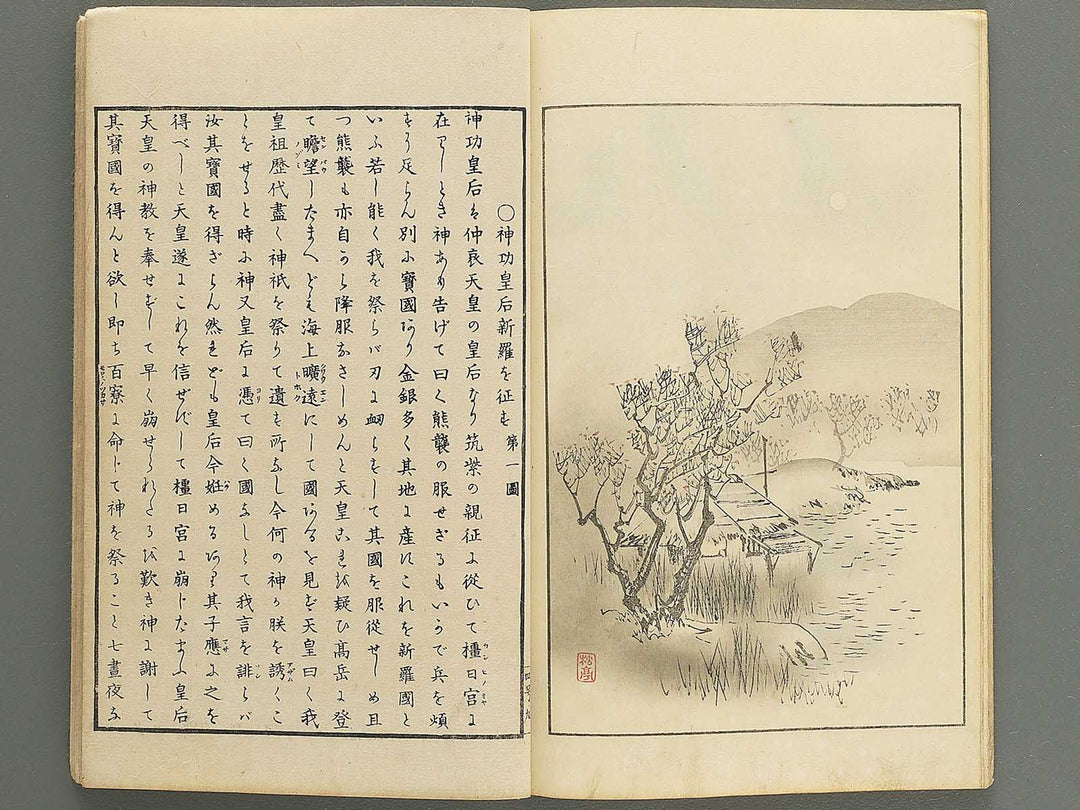 ○神功皇后新羅を征も 第一圖
神功皇后は仲哀天皇の皇后なり筑紫の親征に從ひて橿日宮に
在りしとき神あり告げて曰く熊襲の服せざるもいかで兵を煩
すに足らん別に寶國あり金銀多く其地に產にこれを新羅國と
いふ若し能く我を祭らバ刃に衂らずして其國を服從せしめ且
つ熊襲も亦自から降服なさしめんと天皇これを疑ひ高岳に登
て瞻望したまへども海上曠遠にして國あるを見ず天皇曰く我
皇祖歷代盡く神祇を祭りて遺も所なし今何の神か朕を誘くこ
とをせると時に神又皇后に憑て曰く國なしとて我言を誹らバ
汝其寶國を得ざらん然れども皇后今姙めるあり其子應に之を
得べしと天皇遂にこれを信ぜずして橿日宮に崩じたまふ皇后
天皇の神教を奉せずして早く崩せられたるを歎き神に謝して
其寶國を得んと欲し即ち百寮に命じて神を祭ること七晝夜な
松亭